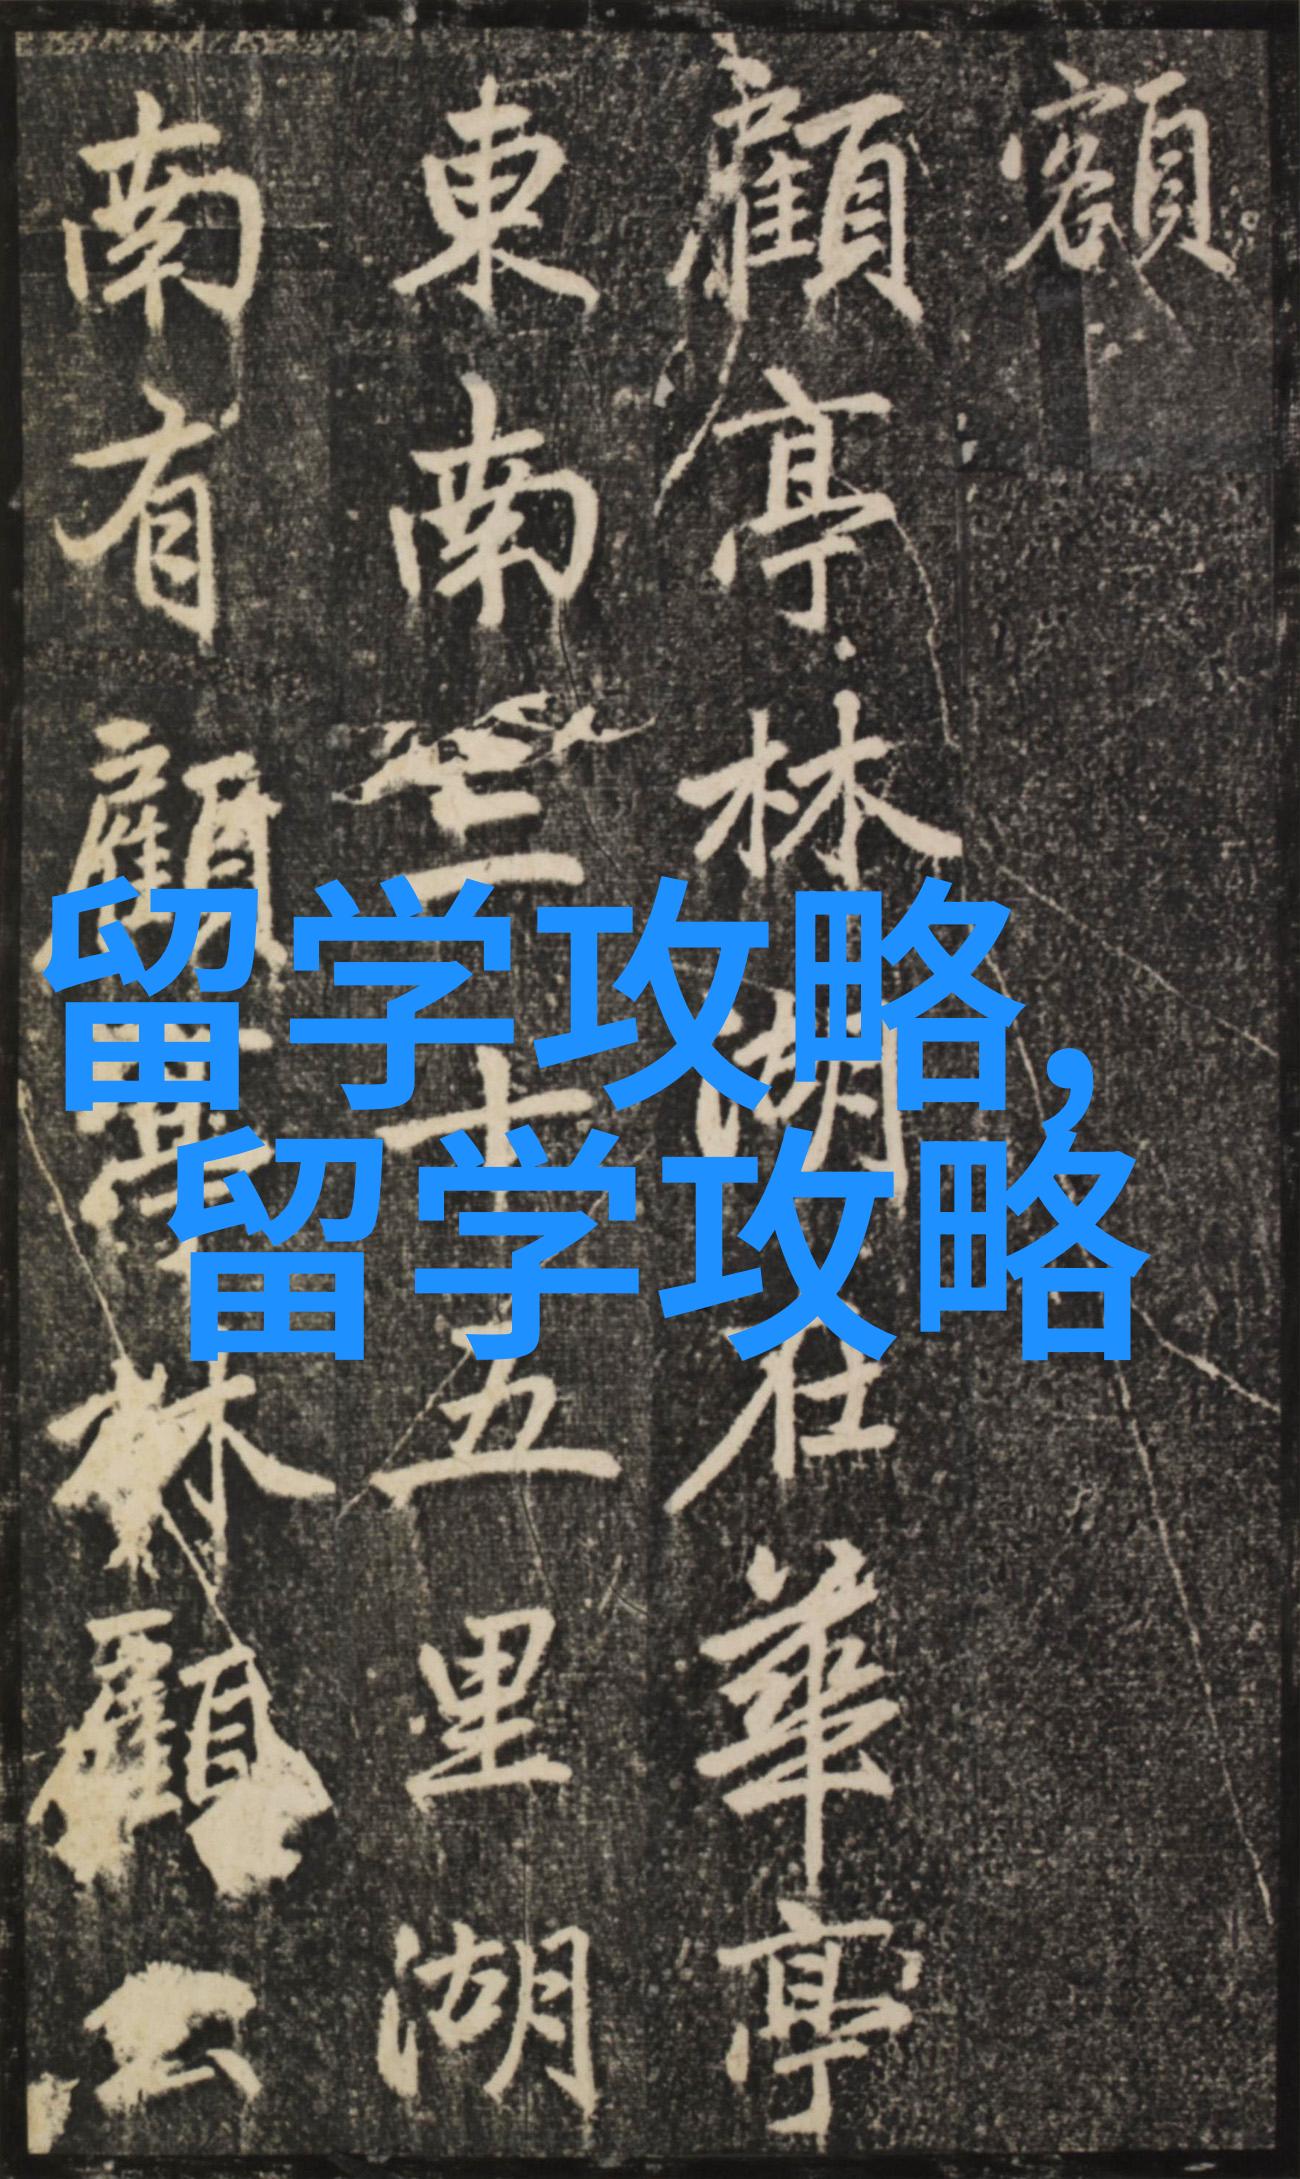 額
顧亭林湖在華亭
東南三十五里湖
南有顧亭林顧公
留学攻略，
留学攻略